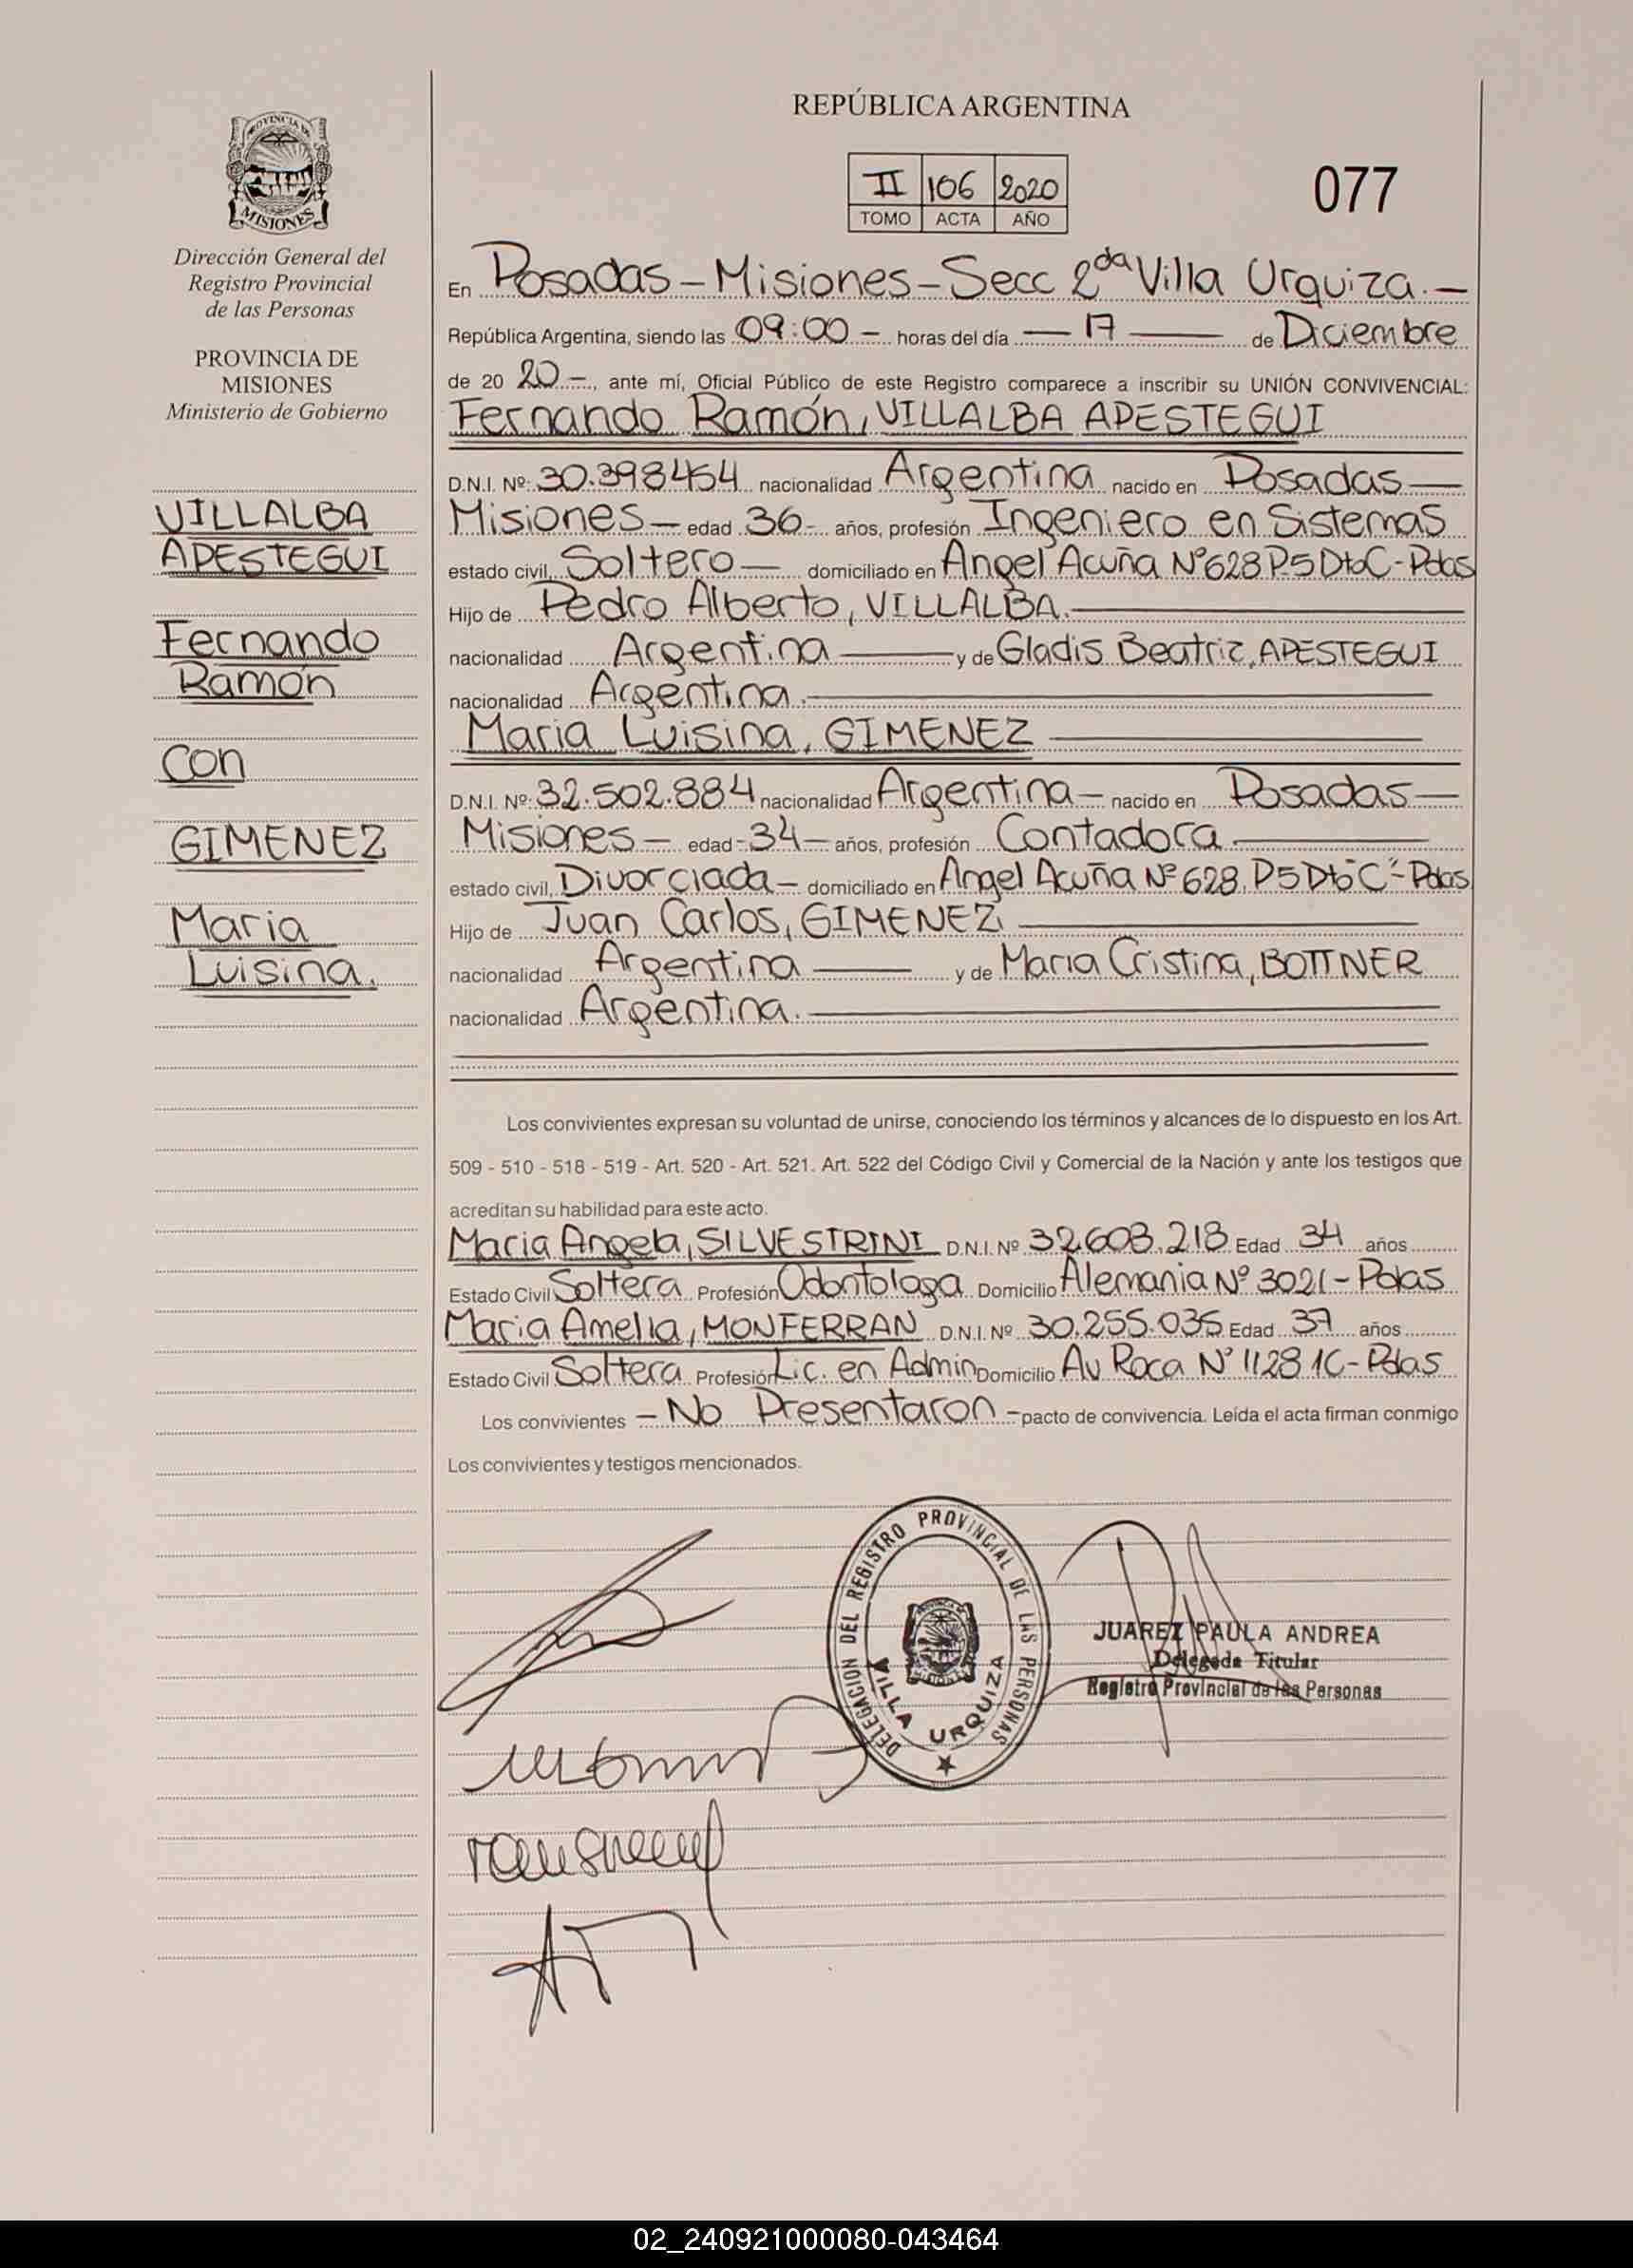 REPÚBLICA ARGENTINA
II 106 2020
TOMO ACTA AÑO
077
PROVINCIA DE
MISIONES
Dirección General del
Registro Provincial
de las Personas
PROVINCIA DE
MISIONES
Ministerio de Gobierno
VILLALBA
APESTEGUI
Fernando
Ramón
Con
GIMENEZ
Maria
Luisina.
En Posadas - Misiones - Secc 2da Villa Urquiza. -
República Argentina, siendo las 09:00 - horas del día — 17 — de Diciembre
de 20 20 -, ante mí, Oficial Público de este Registro comparece a inscribir su UNIÓN CONVIVENCIAL:
Fernando Ramón, VILLALBA APESTEGUI
D.N.I. Nº: 30.398454 nacionalidad Argentina nacido en Posadas —
Misiones — edad 36 - años, profesión Ingeniero en Sistemas
estado civil, Soltero — domiciliado en Angel Acuña Nº 628 P-5 Dto C - Pdas
Hijo de Pedro Alberto, VILLALBA. —
nacionalidad Argentina — y de Gladis Beatriz, APESTEGUI
nacionalidad Argentina. —
Maria Luisina, GIMENEZ —
D.N.I. Nº: 32.502.884 nacionalidad Argentina - nacido en Posadas —
Misiones — edad - 34 - años, profesión Contadora —
estado civil, Divorciada - domiciliado en Angel Acuña Nº 628 P5 Dto "C" - Pdas
Hijo de Juan Carlos, GIMENEZ —
nacionalidad Argentina — y de Maria Cristina, BOTTNER
nacionalidad Argentina. —
Los convivientes expresan su voluntad de unirse, conociendo los términos y alcances de lo dispuesto en los Art.
509 - 510 - 518 - 519 - Art. 520 - Art. 521. Art. 522 del Código Civil y Comercial de la Nación y ante los testigos que
acreditan su habilidad para este acto.
Maria Angela, SILVESTRINI D.N.I. Nº 32.603.218 Edad 34 años
Estado Civil Soltera Profesión Odontologa Domicilio Alemania Nº 3021 - Pdas
Maria Amelia, MONFERRAN D.N.I. Nº 30.255.035 Edad 37 años
Estado Civil Soltera Profesión Lic. en Admin Domicilio Av Roca Nº 1128 1C - Pdas
Los convivientes - No Presentaron - pacto de convivencia. Leída el acta firman conmigo
Los convivientes y testigos mencionados.
DELEGACION DEL REGISTRO PROVINCIAL DE LAS PERSONAS
VILLA URQUIZA
JUAREZ PAULA ANDREA
Delegada Titular
Registro Provincial de las Personas
02_240921000080-043464